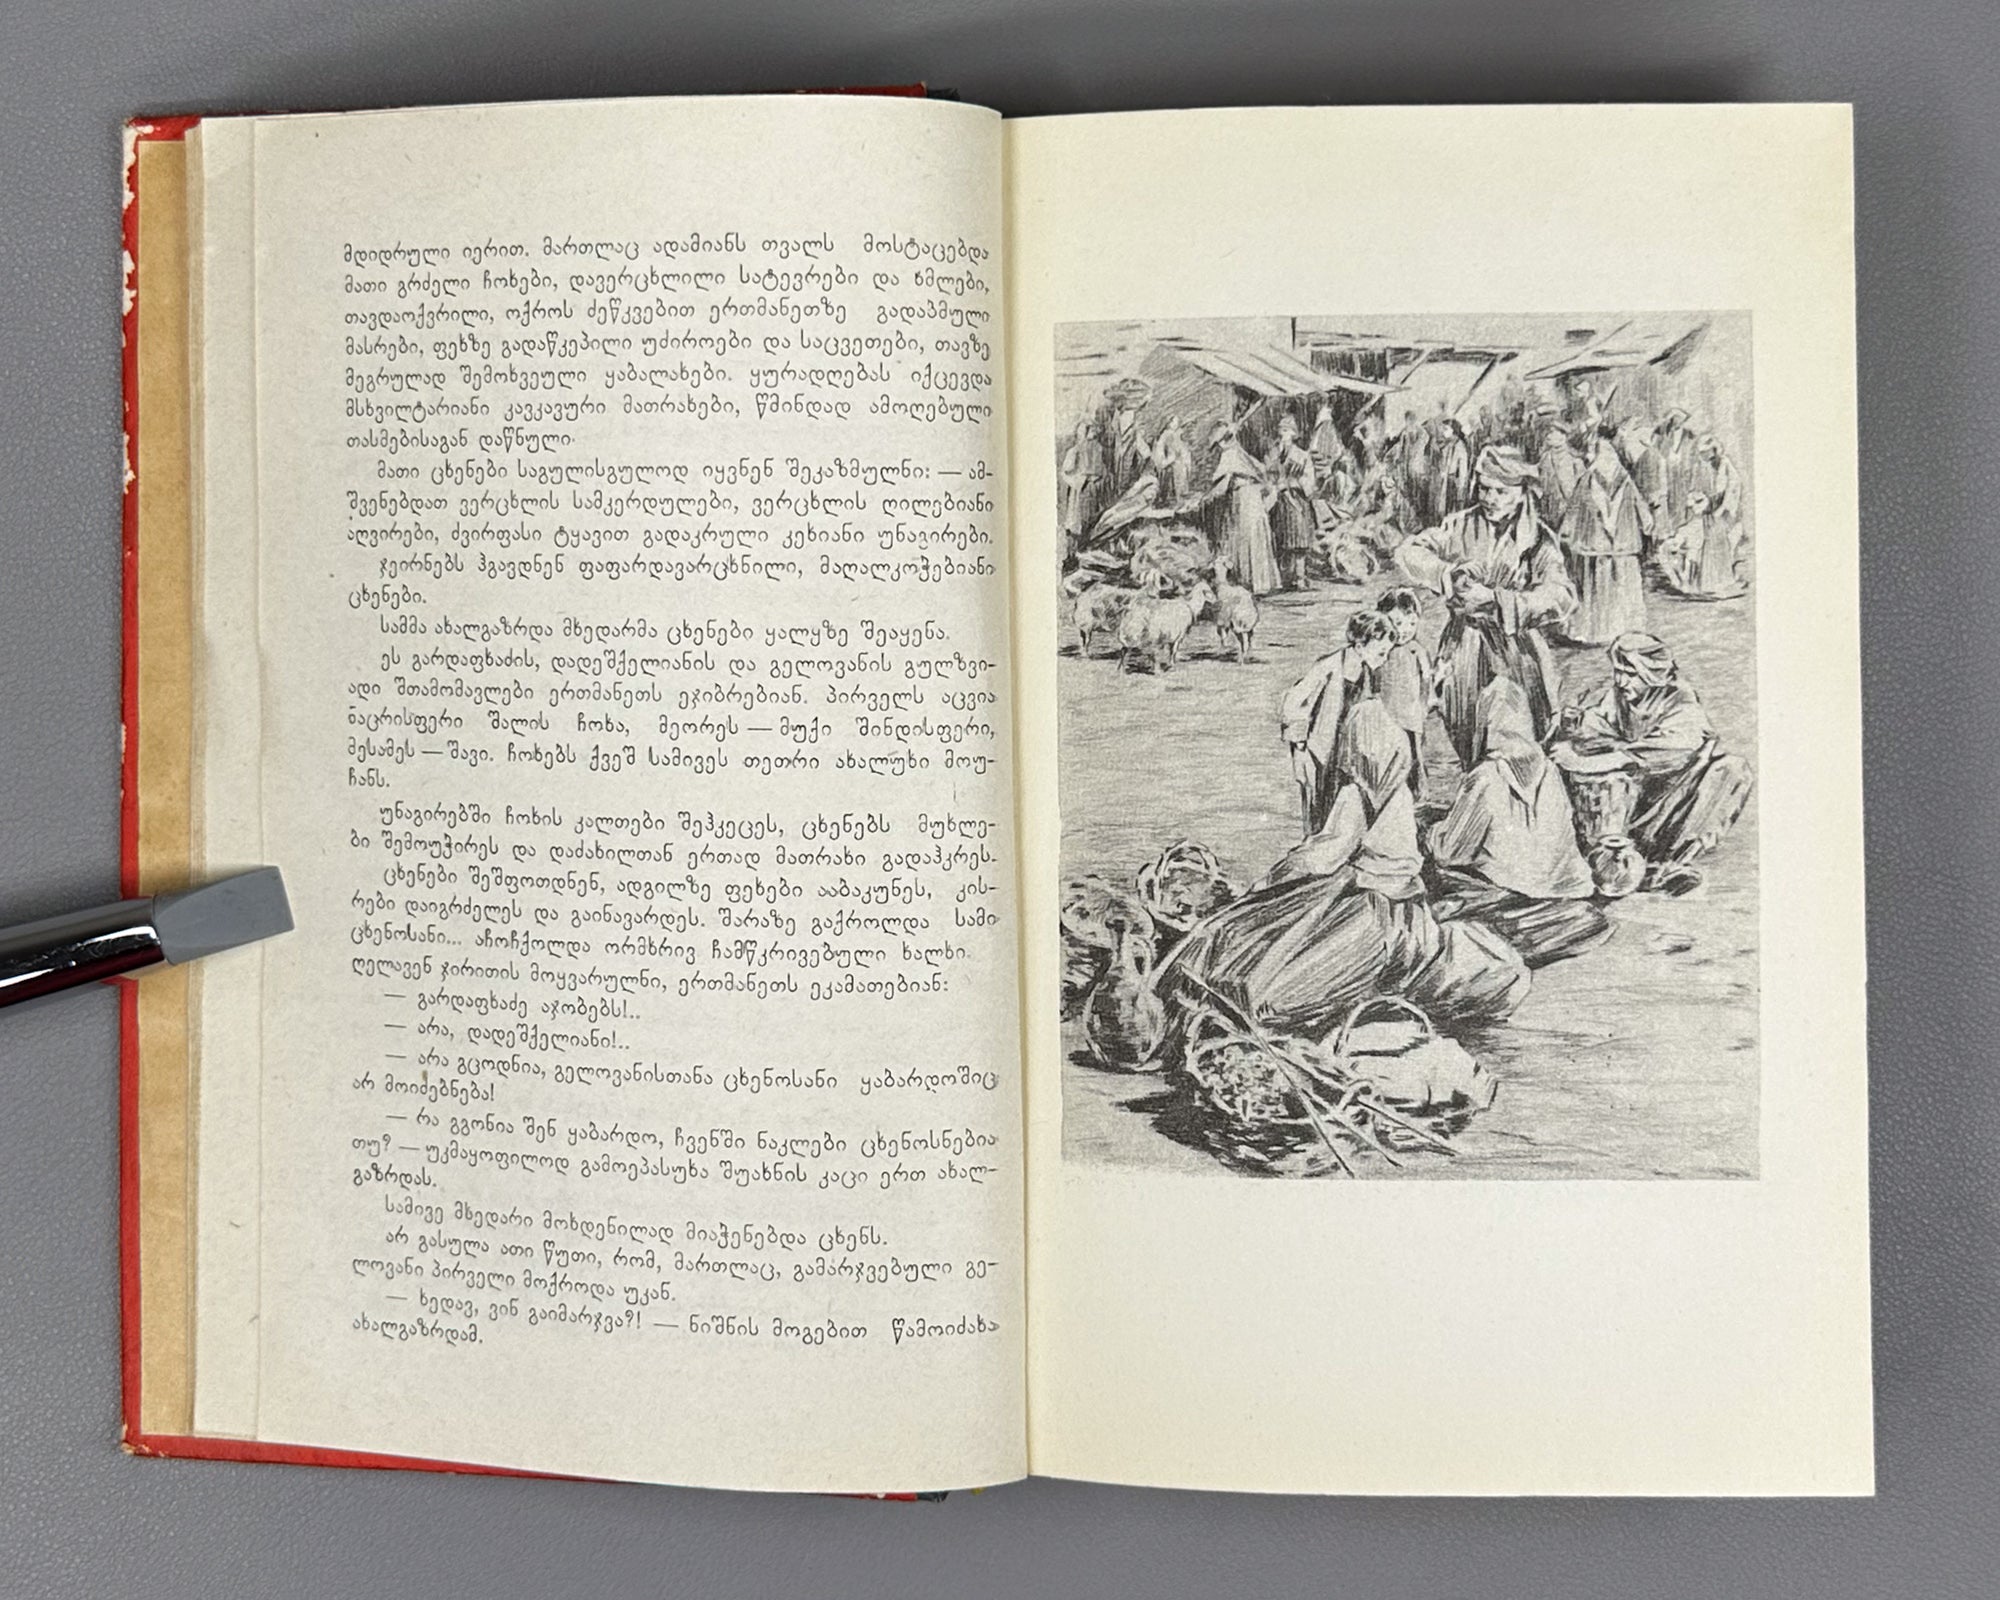 მდიდრული იერით. მართლაც ადამიანს თვალს მოსტაცებდა
მათი გრძელი ჩოხები, დავერცხლილი სატევრები და ხმლები,
თავდაოქვრილი, ოქროს ძეწკვებით ერთმანეთზე გადაბმული
მასრები, ფეხზე გადაწკეპილი უძიროები და საცვეთები, თავზე
მეგრულად შემოხვეული ყაბალახები. ყურადღებას იქცევდა
მსხვილტარიანი კავკავური მათრახები, წმინდად ამოღებული
თასმებისაგან დაწნული.
მათი ცხენები საგულისგულოდ იყვნენ შეკაზმულნი: — ამ-
შვენებდათ ვერცხლის სამკერდულები, ვერცხლის ღილებიანი
აღვირები, ძვირფასი ტყავით გადაკრული კეხიანი უნაგირები.
ჯეირნებს ჰგავდნენ ფაფარდავარცხნილი, მაღალკოჭებიანი
ცხენები.
სამმა ახალგაზრდა მხედარმა ცხენები ყალყზე შეაყენა.
ეს გარდაფხაძის, დადეშქელიანის და გელოვანის გულზვი-
ადი შთამომავლები ერთმანეთს ეჯიბრებიან. პირველს აცვია
ნაცრისფერი შალის ჩოხა, მეორეს — მუქი შინდისფერი,
მესამეს — შავი. ჩოხებს ქვეშ სამივეს თეთრი ახალუხი მოუ-
ჩანს.
უნაგირებში ჩოხის კალთები შეჰკეცეს, ცხენებს მუხლე-
ბი შემოუჭირეს და დაძახილთან ერთად მათრახი გადაჰკრეს.
ცხენები შეშფოთდნენ, ადგილზე ფეხები ააბაკუნეს, კის-
რები დაიგრძელეს და გაინავარდეს. შარაზე გაქროლდა სამი
ცხენოსანი... აჩოჩქოლდა ორმხრივ ჩამწკრივებული ხალხი.
ღელავენ ჯირითის მოყვარულნი, ერთმანეთს ეკამათებიან:
— გარდაფხაძე აჯობებს!..
— არა, დადეშქელიანი!..
— არა გცოდნია, გელოვანისთანა ცხენოსანი ყაბარდოშიც
არ მოიძებნება!
— რა გგონია შენ ყაბარდო, ჩვენში ნაკლები ცხენოსნებია
თუ? — უკმაყოფილოდ გამოეპასუხა შუახნის კაცი ერთ ახალ-
გაზრდას.
სამივე მხედარი მოხდენილად მიაჭენებდა ცხენს.
არ გასულა ათი წუთი, რომ, მართლაც, გამარჯვებული გე-
ლოვანი პირველი მოქროდა უკან.
— ხედავ, ვინ გაიმარჯვა?! — ნიშნის მოგებით წამოიძახა
ახალგაზრდამ.